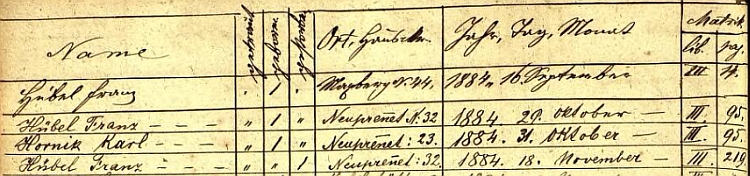 Name getraut geborn. gestorb. Ort, Hausnr. Jahr, Tag, Monat Matrik
lib. pag.
Hübel Franz " 1 " Maxberg N. 44. 1884. 16. September III 4.
Hübel Franz - - - " 1 " Neuprennet N. 32 1884 29. Oktober - III. 95.
Hornik Karl - - - - " 1 " Neuprennet: 23. 1884. 31. Oktober - III. 95.
Hübel Franz - - - " " 1 Neuprennet: 32. 1884. 18. November - III. 219